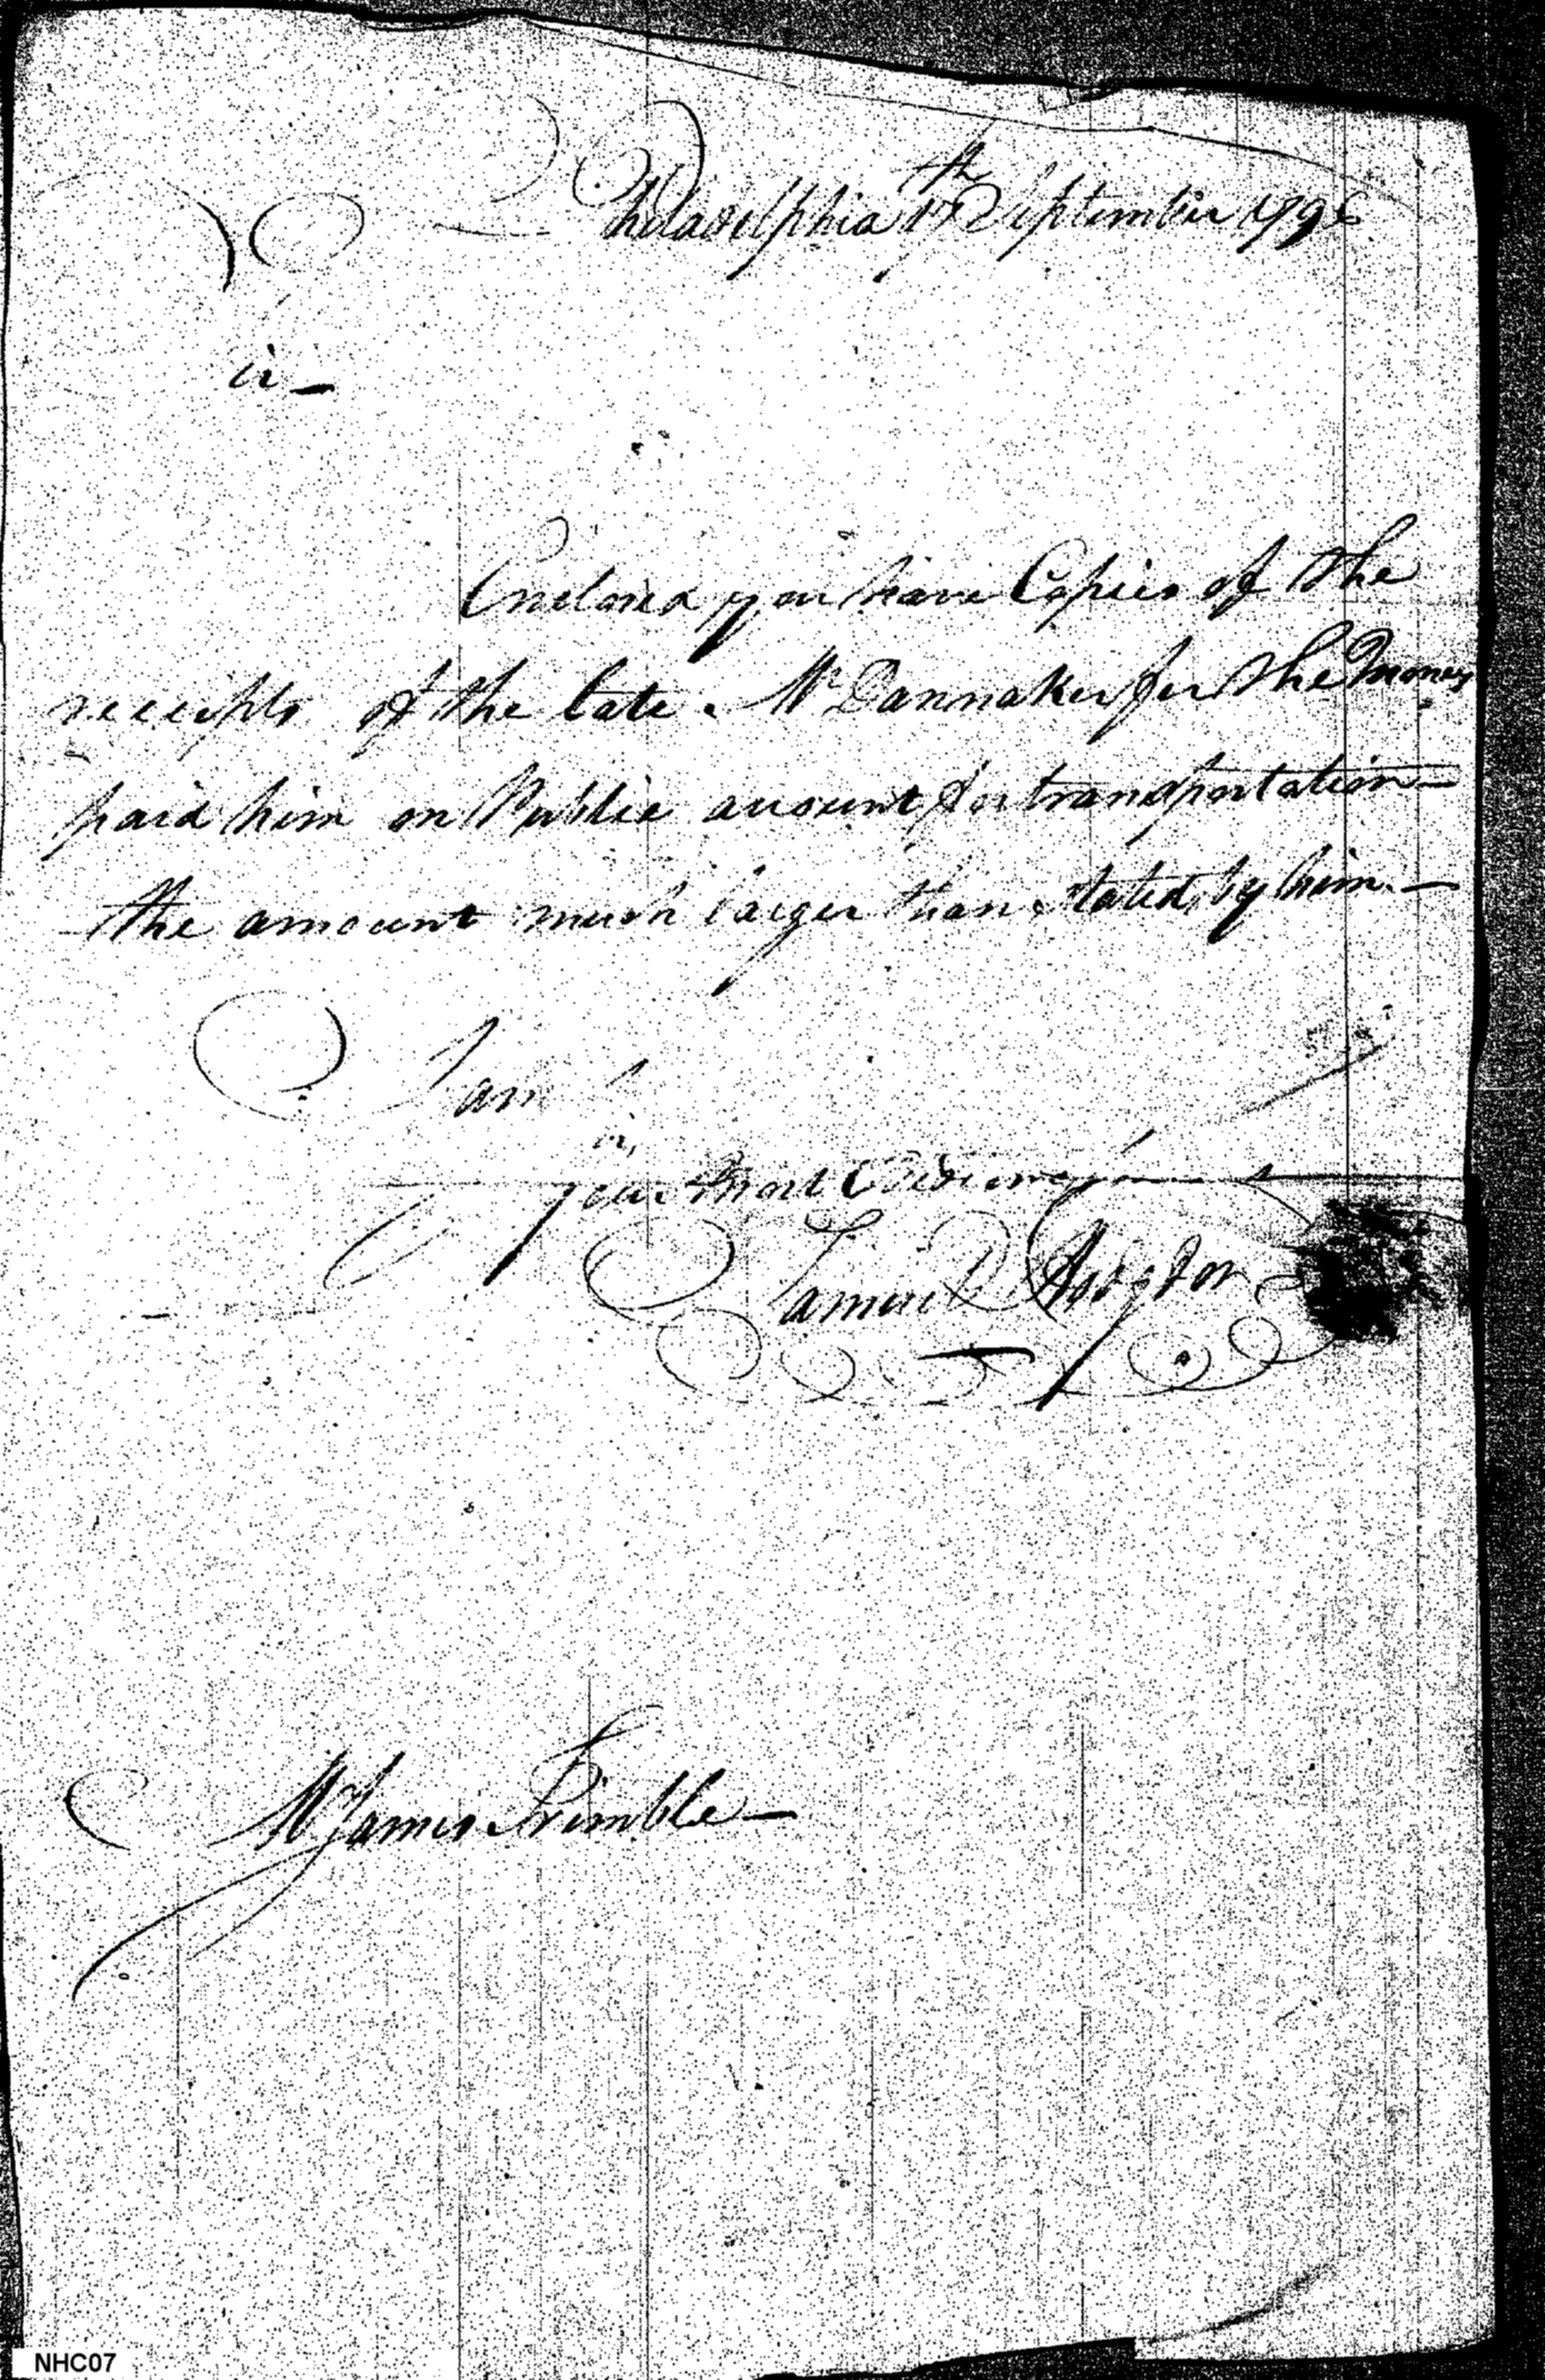 Philadelphia 17th September 179
Sir —
Enclosed you have Copies of the
receipts of the late Mr Dannaker for the Money
paid him on Public account for transportation —
the amount much larger than stated by him. —
I am
Sir,
your most Obedient
Samuel Hodgdon
Mr James Trimble —
NHC07